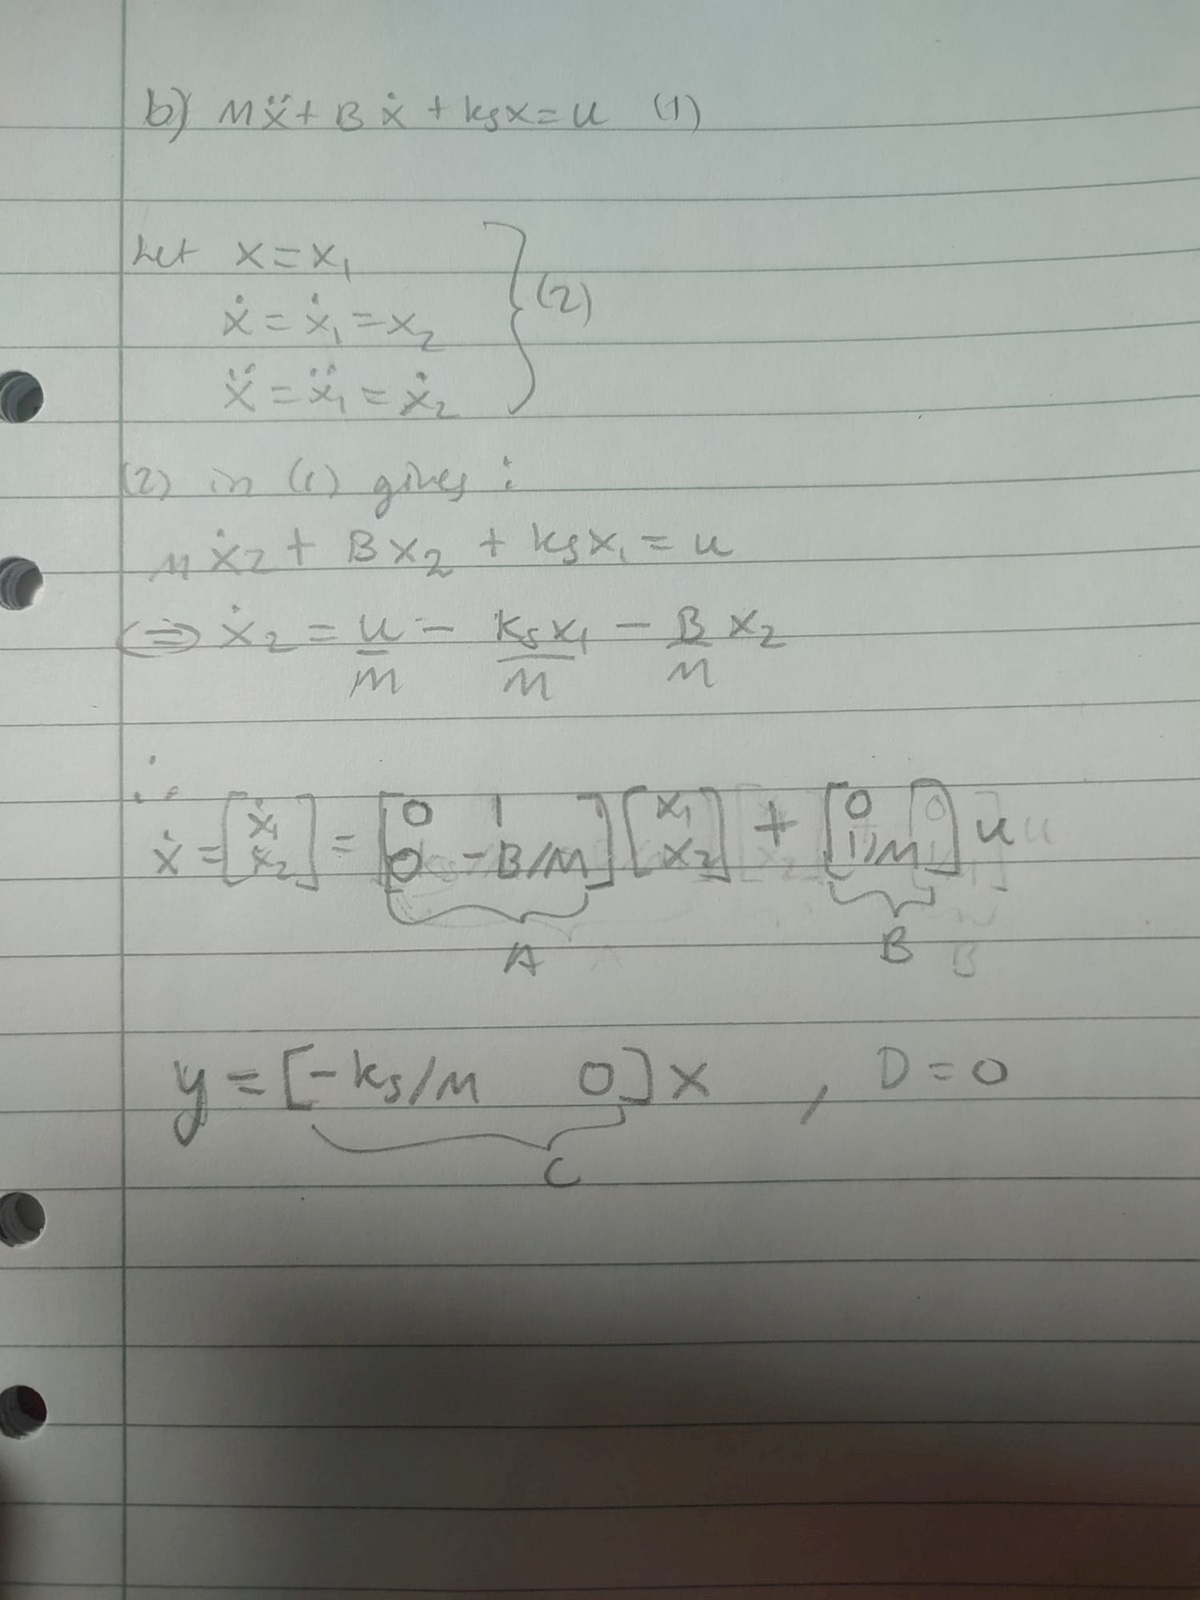 b) Mẍ + Bẋ + ksx = u (1)
Let x = x₁
ẋ = ẋ₁ = x₂
ẍ = ẍ₁ = ẋ₂
(2)
(2) in (1) gives :
Mẋ₂ + Bx₂ + ksx₁ = u
⇔ ẋ₂ = u/M - ksx₁/M - B/M x₂
∴
ẋ = [ẋ₁; ẋ₂] = [0 1; 0 -B/M] [x₁; x₂] + [0; 1/M] u
A B
y = [-ks/M 0] x , D = 0
C